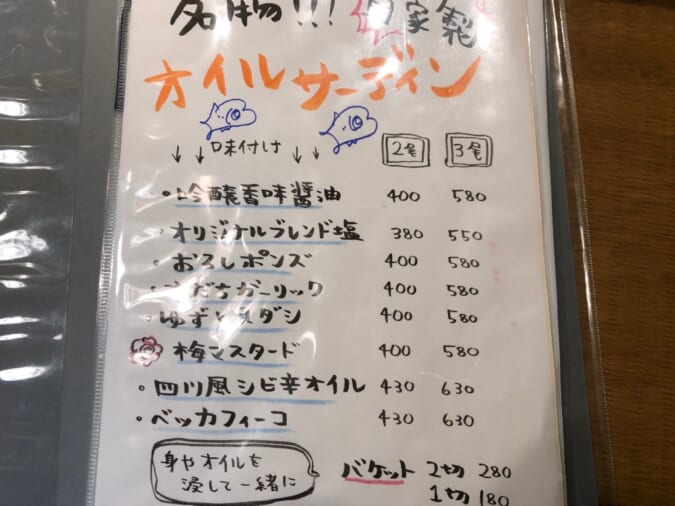 名物!!! 自家製
オイルサーディン
↓ ↓ 味付け ↓ ↓ 2尾 3尾
・吟醸香味醤油 400 580
・オリジナルブレンド塩 380 550
・おろしポンズ 400 580
・すだちガーリック 400 580
400 580
梅マスタード 400 580
・四川風シビ辛オイル 430 630
・ベッカフィーコ 430 630
身やオイルを
浸して一緒に
バケット 2切 280
1切 180